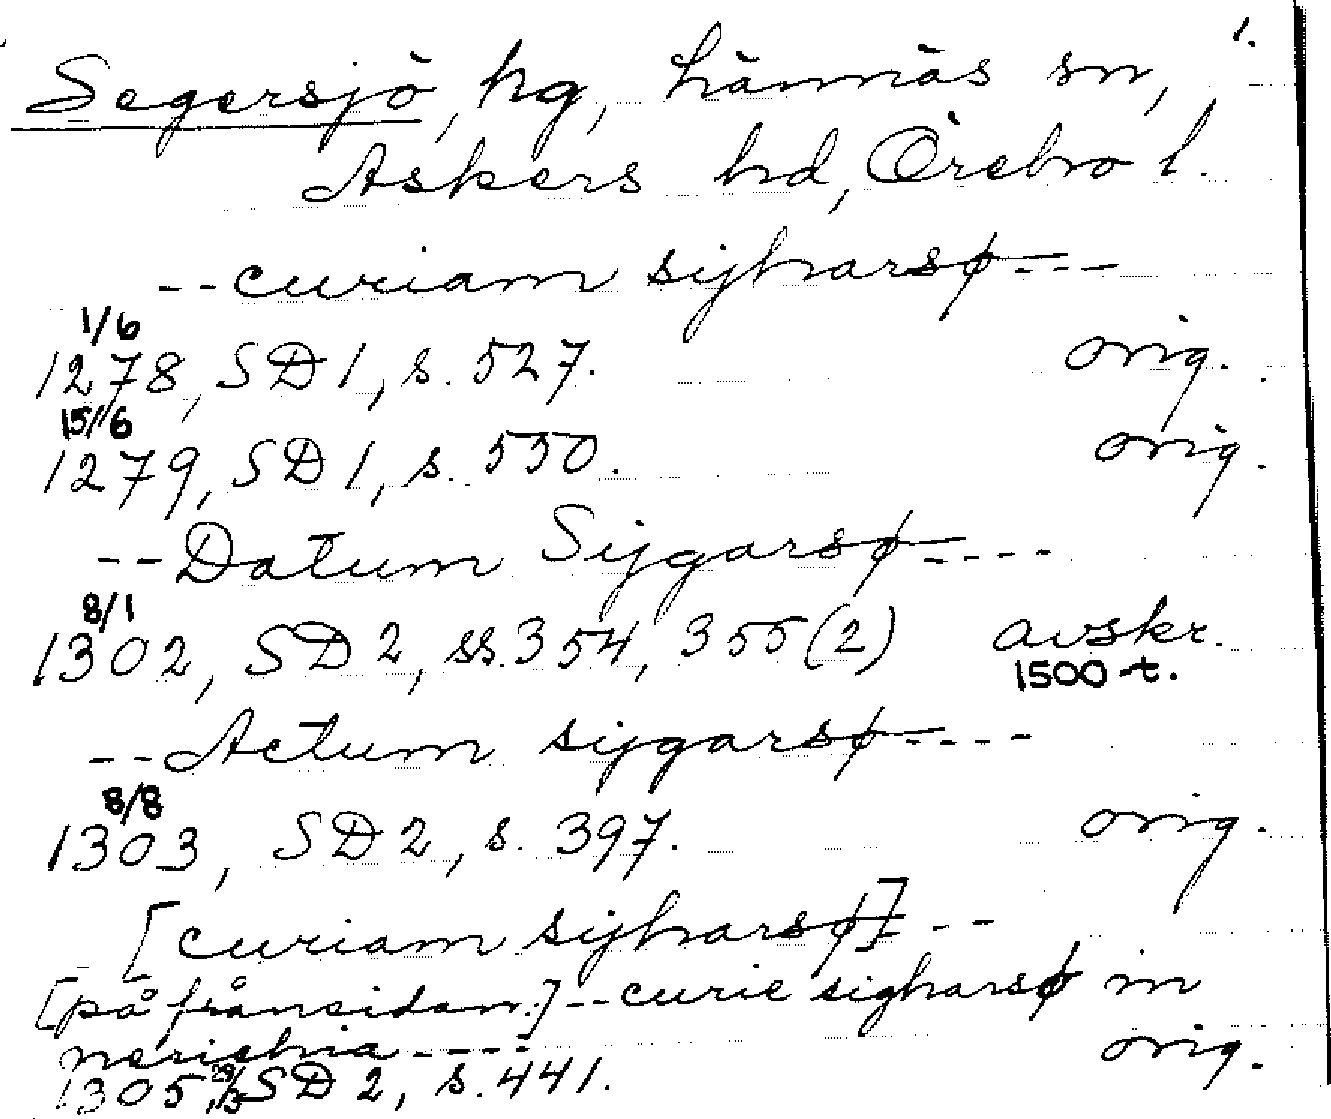 1.
Segersjö, hg, Lännäs sn,
Askers hd, Örebro l.
--curiam sijharsø---
1/6
1278, SD 1, s. 527. orig.
15/6
1279, SD 1, s. 550. orig.
--Datum Sijgarsø----
8/1
1302, SD 2, ss. 354, 355 (2) avskr.
1500-t.
--Actum sijgarsø----
8/8
1303, SD 2, s. 397. orig.
[curiam sijharsø]--
[på frånsidan:]--curie sigharsø in
nerichia---- orig.
1305, SD 2, s. 441.